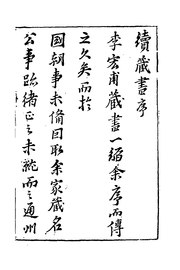 續藏書序
李宏甫藏書一編余序而傳
之久矣而於
國朝事未備因取余家藏名
公事跡緒正之未就而之通州